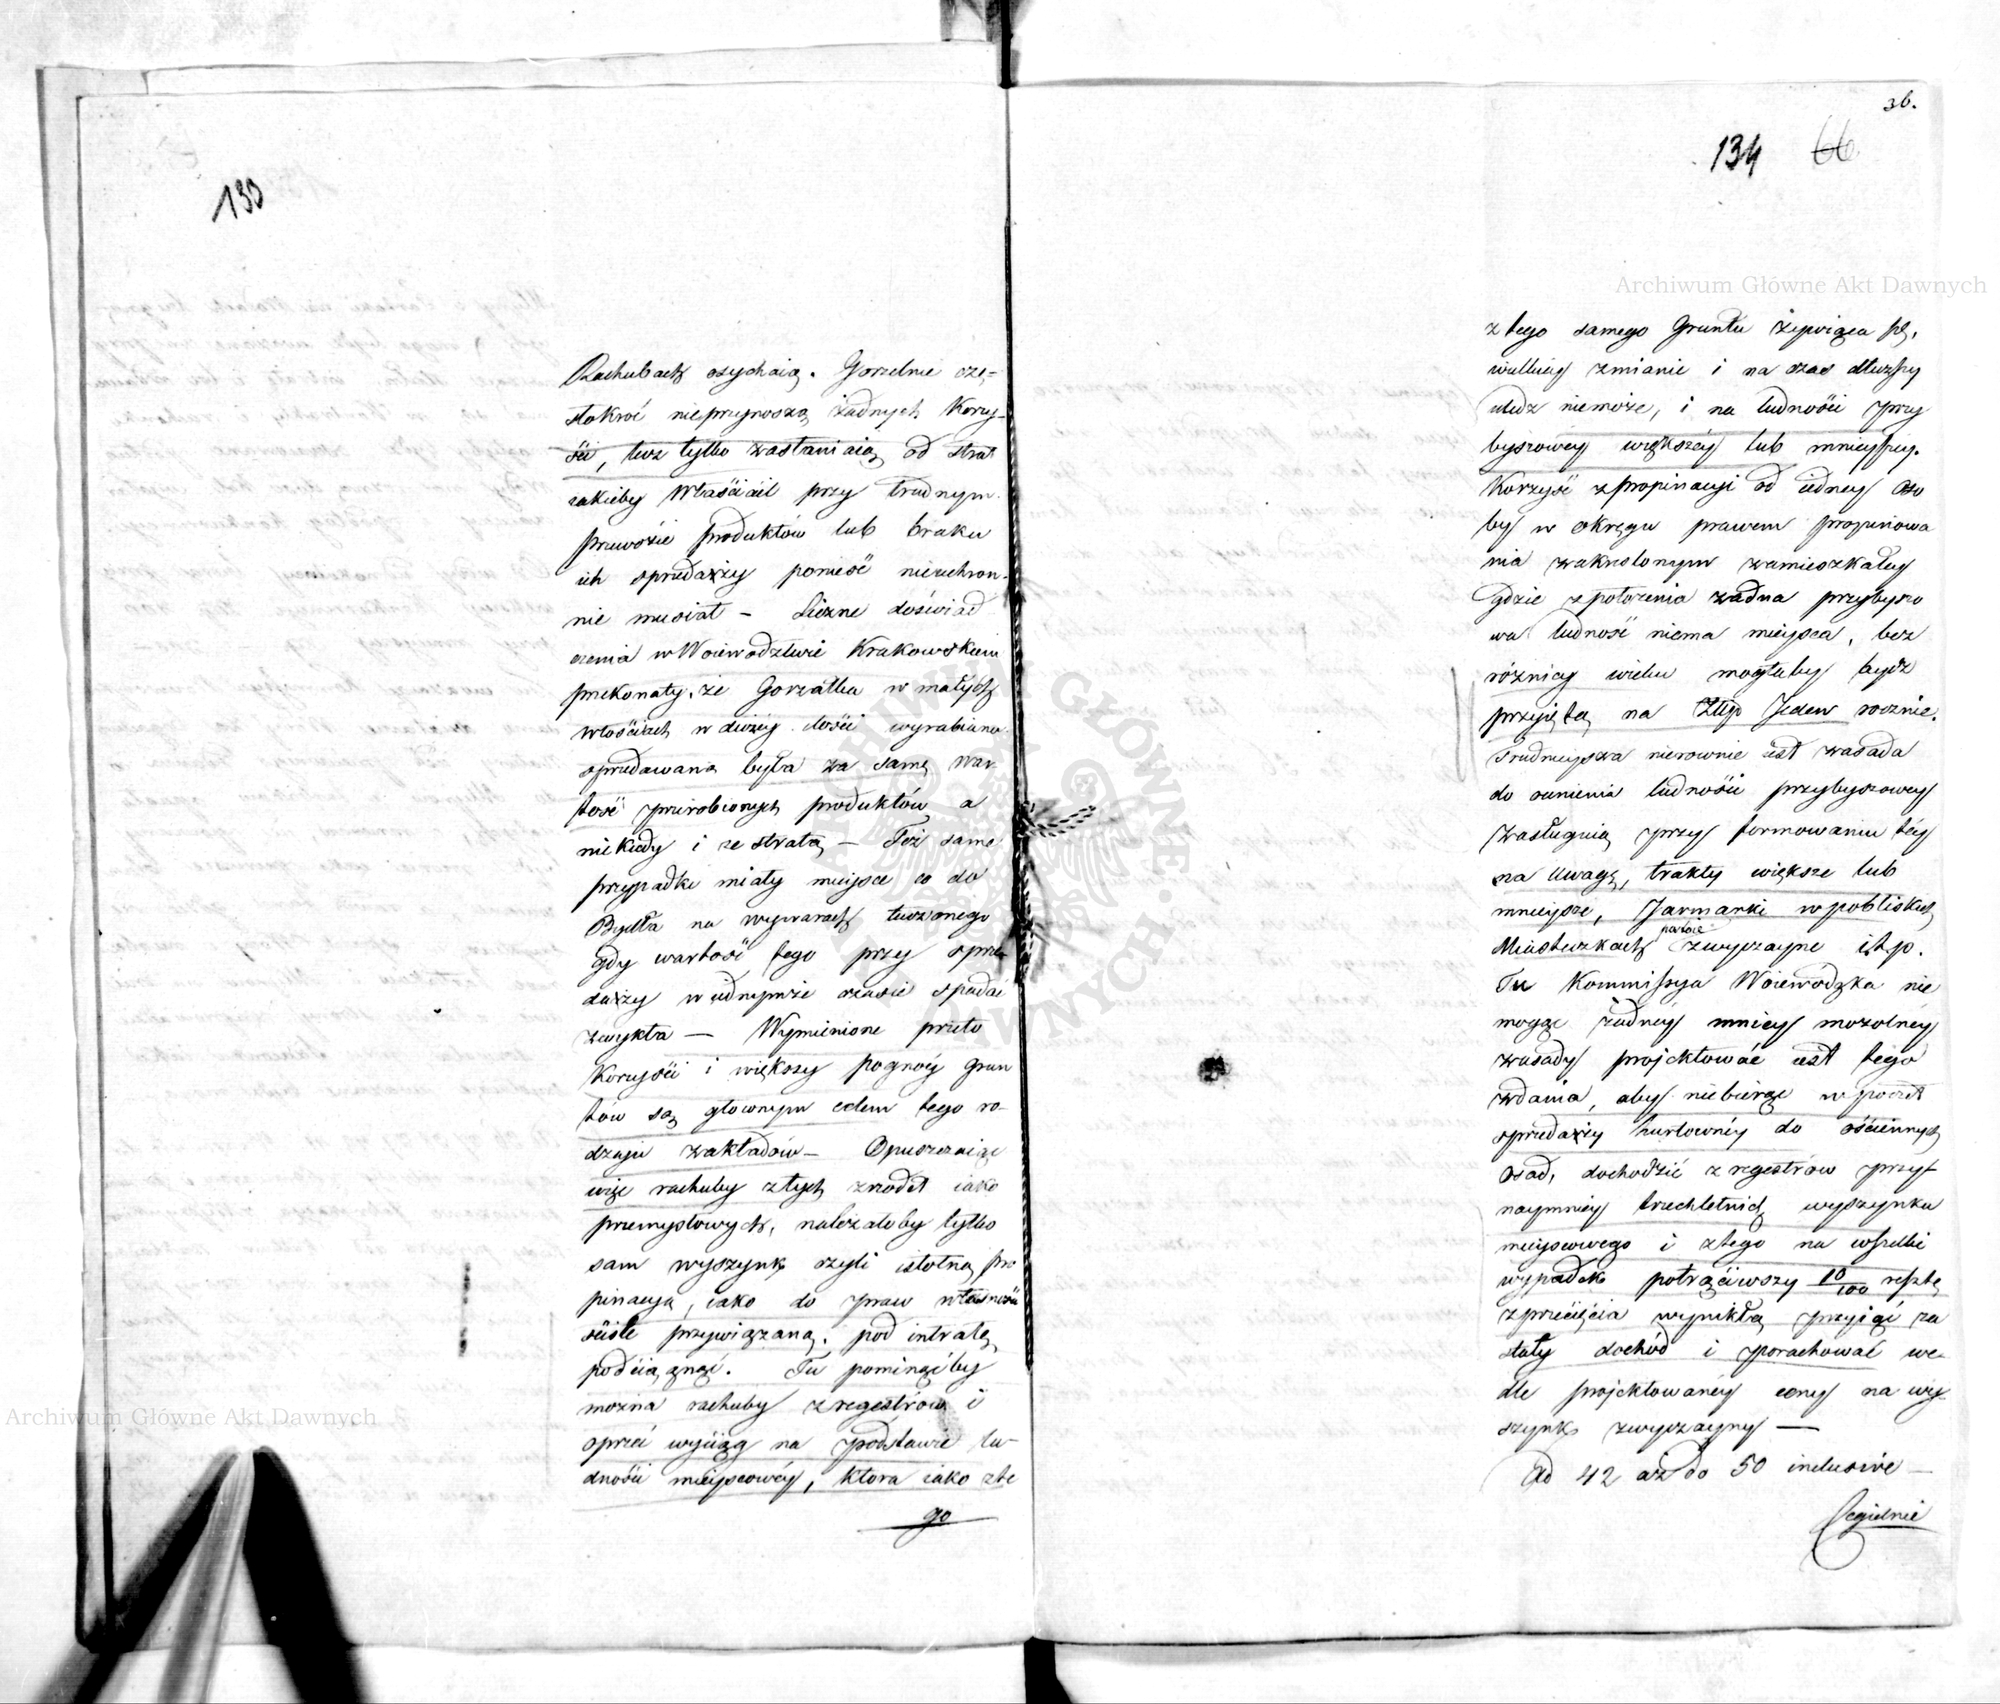 133
Rachubach osychaią. Gorzelnie czę-
stokroć nieprzynoszą żadnych Korzy-
ści, lecz tylko zasłaniaią od strat
iakieby Właściciel przy trudnym
przewozie produktów lub braku
ich sprzedaży ponieść nieuchron-
nie musiał – Liczne doświad
czenia w Woiewództwie Krakowskiem
przekonały, że Gorzałka w małych
włościach w dużéy ilości wyrabiana
sprzedawaną była za samę war
tość przerobionych produktów a
niekiedy i ze stratą – Też same
przypadki miały mieysce co do
Bydła na wywarach tuczonego
gdy wartość tego przy sprze
daży w iednymże czasie spadać
zwykła — Wymienione przeto
Korzyści i większy pognóy grun
tów są głownym celem tego ro-
dzaju zakładów – Opuszczaiąc
więc rachuby z tych zrodeł iako
przemysłowych, należałoby tylko
sam wyszynk czyli istotną pro
pinacyą, iako do praw własności
ściśle przywiązaną, pod intratę
podciągnąć. Tu pominąćby
można rachuby z regestrów i
oprzeć wyciąg na podstawie lu-
dności mieyscowéy, ktora iako z te
go
36.
134 66
z tego samego Gruntu żywiąca się,
wielkiéy zmianie i na czas dłuższy
uledz niemoże, i na ludności przy
byszowéy większéy lub mnieyszéy.
Korzyść z propinacyi od iednéy oso
by w okręgu prawem propinowa
nia zakreslonym zamieszkałéy
gdzie z położenia żadna przybyszo
wa ludność niema mieysca, bez
różnicy wieku mogłaby bydź
przyiętą na Złłp Jeden rocznie.
Trudnieysza nierownie iest zasada
do ocenienia ludności przybyszowéy
zasługuią przy formowaniu téy
na uwagę, trakty większe lub
mnieysze, Jarmarki w pobliskich
Miasteczkach zwyczayne i t. p.
Tu Kommissya Woiewódzka nie
mogąc żadnéy mniéy mozolnéy
zasady projektować iest tego
zdania, aby niebiorąc w poczet
sprzedaży hurtownéy do ościennych
osad, dochodzić z regestrów przy-
naymniéy trzechletnich wyszynku
mieyscowego i z tego na wszelki
wypadek potrąciwszy 10/100 resztę
z przecięcia wynikłą przyiąć za
stały dochód i porachować we-
dle projektowanéy ceny na wy-
szynk zwyczayny —
Ad 42 aż do 50 inclusive –
Cegielnie
Archiwum Główne Akt Dawnych
Archiwum Główne Akt Dawnych